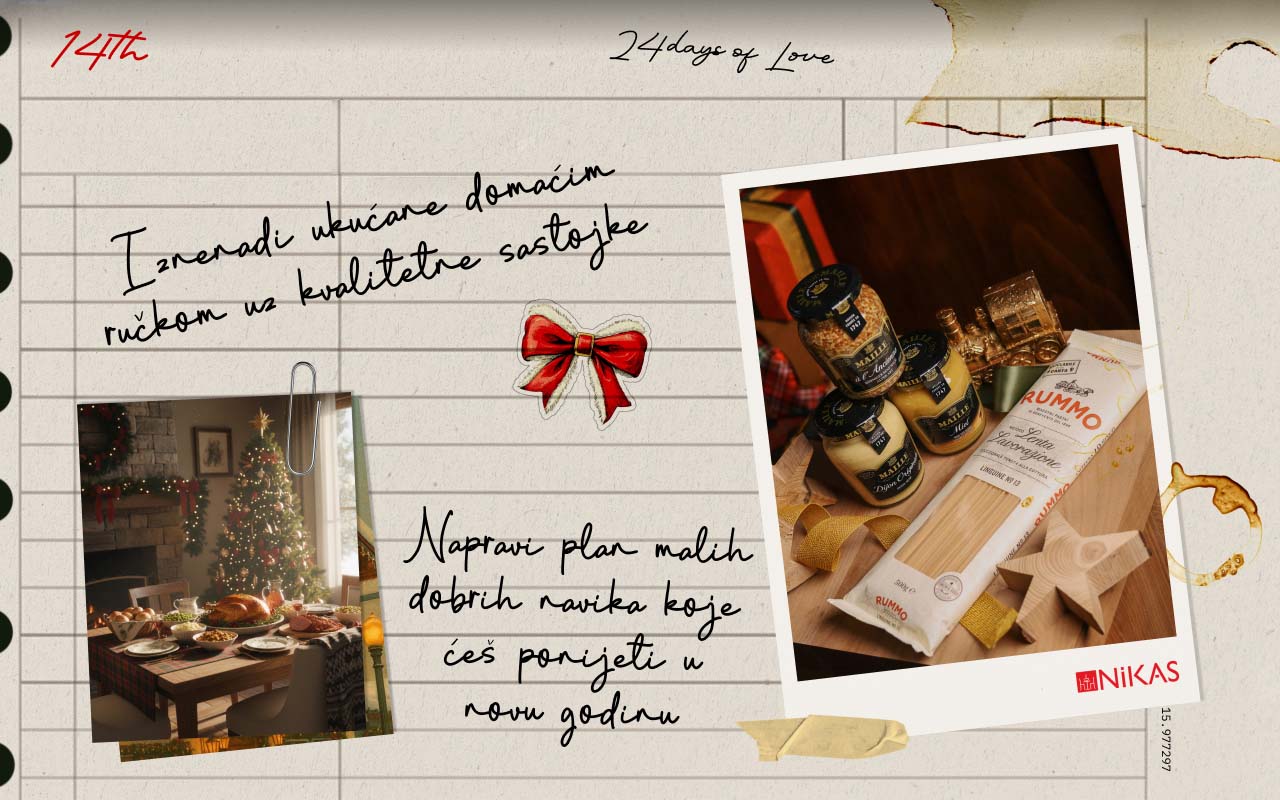 14th
24days of Love
Iznenadi ukućane domaćim
ručkom uz kvalitetne sastojke
Napravi plan malih
dobrih navika koje
ćeš ponijeti u
novu godinu
MAILLE
à l'Ancienne
1747
MAILLE
Miel
1747
MAILLE
Dijon Originale
1747
RUMMO
Lenta
Lavorazione
LINGUINE No 13
500g e
RUMMO
RUMMO
NiKAS
15.977297